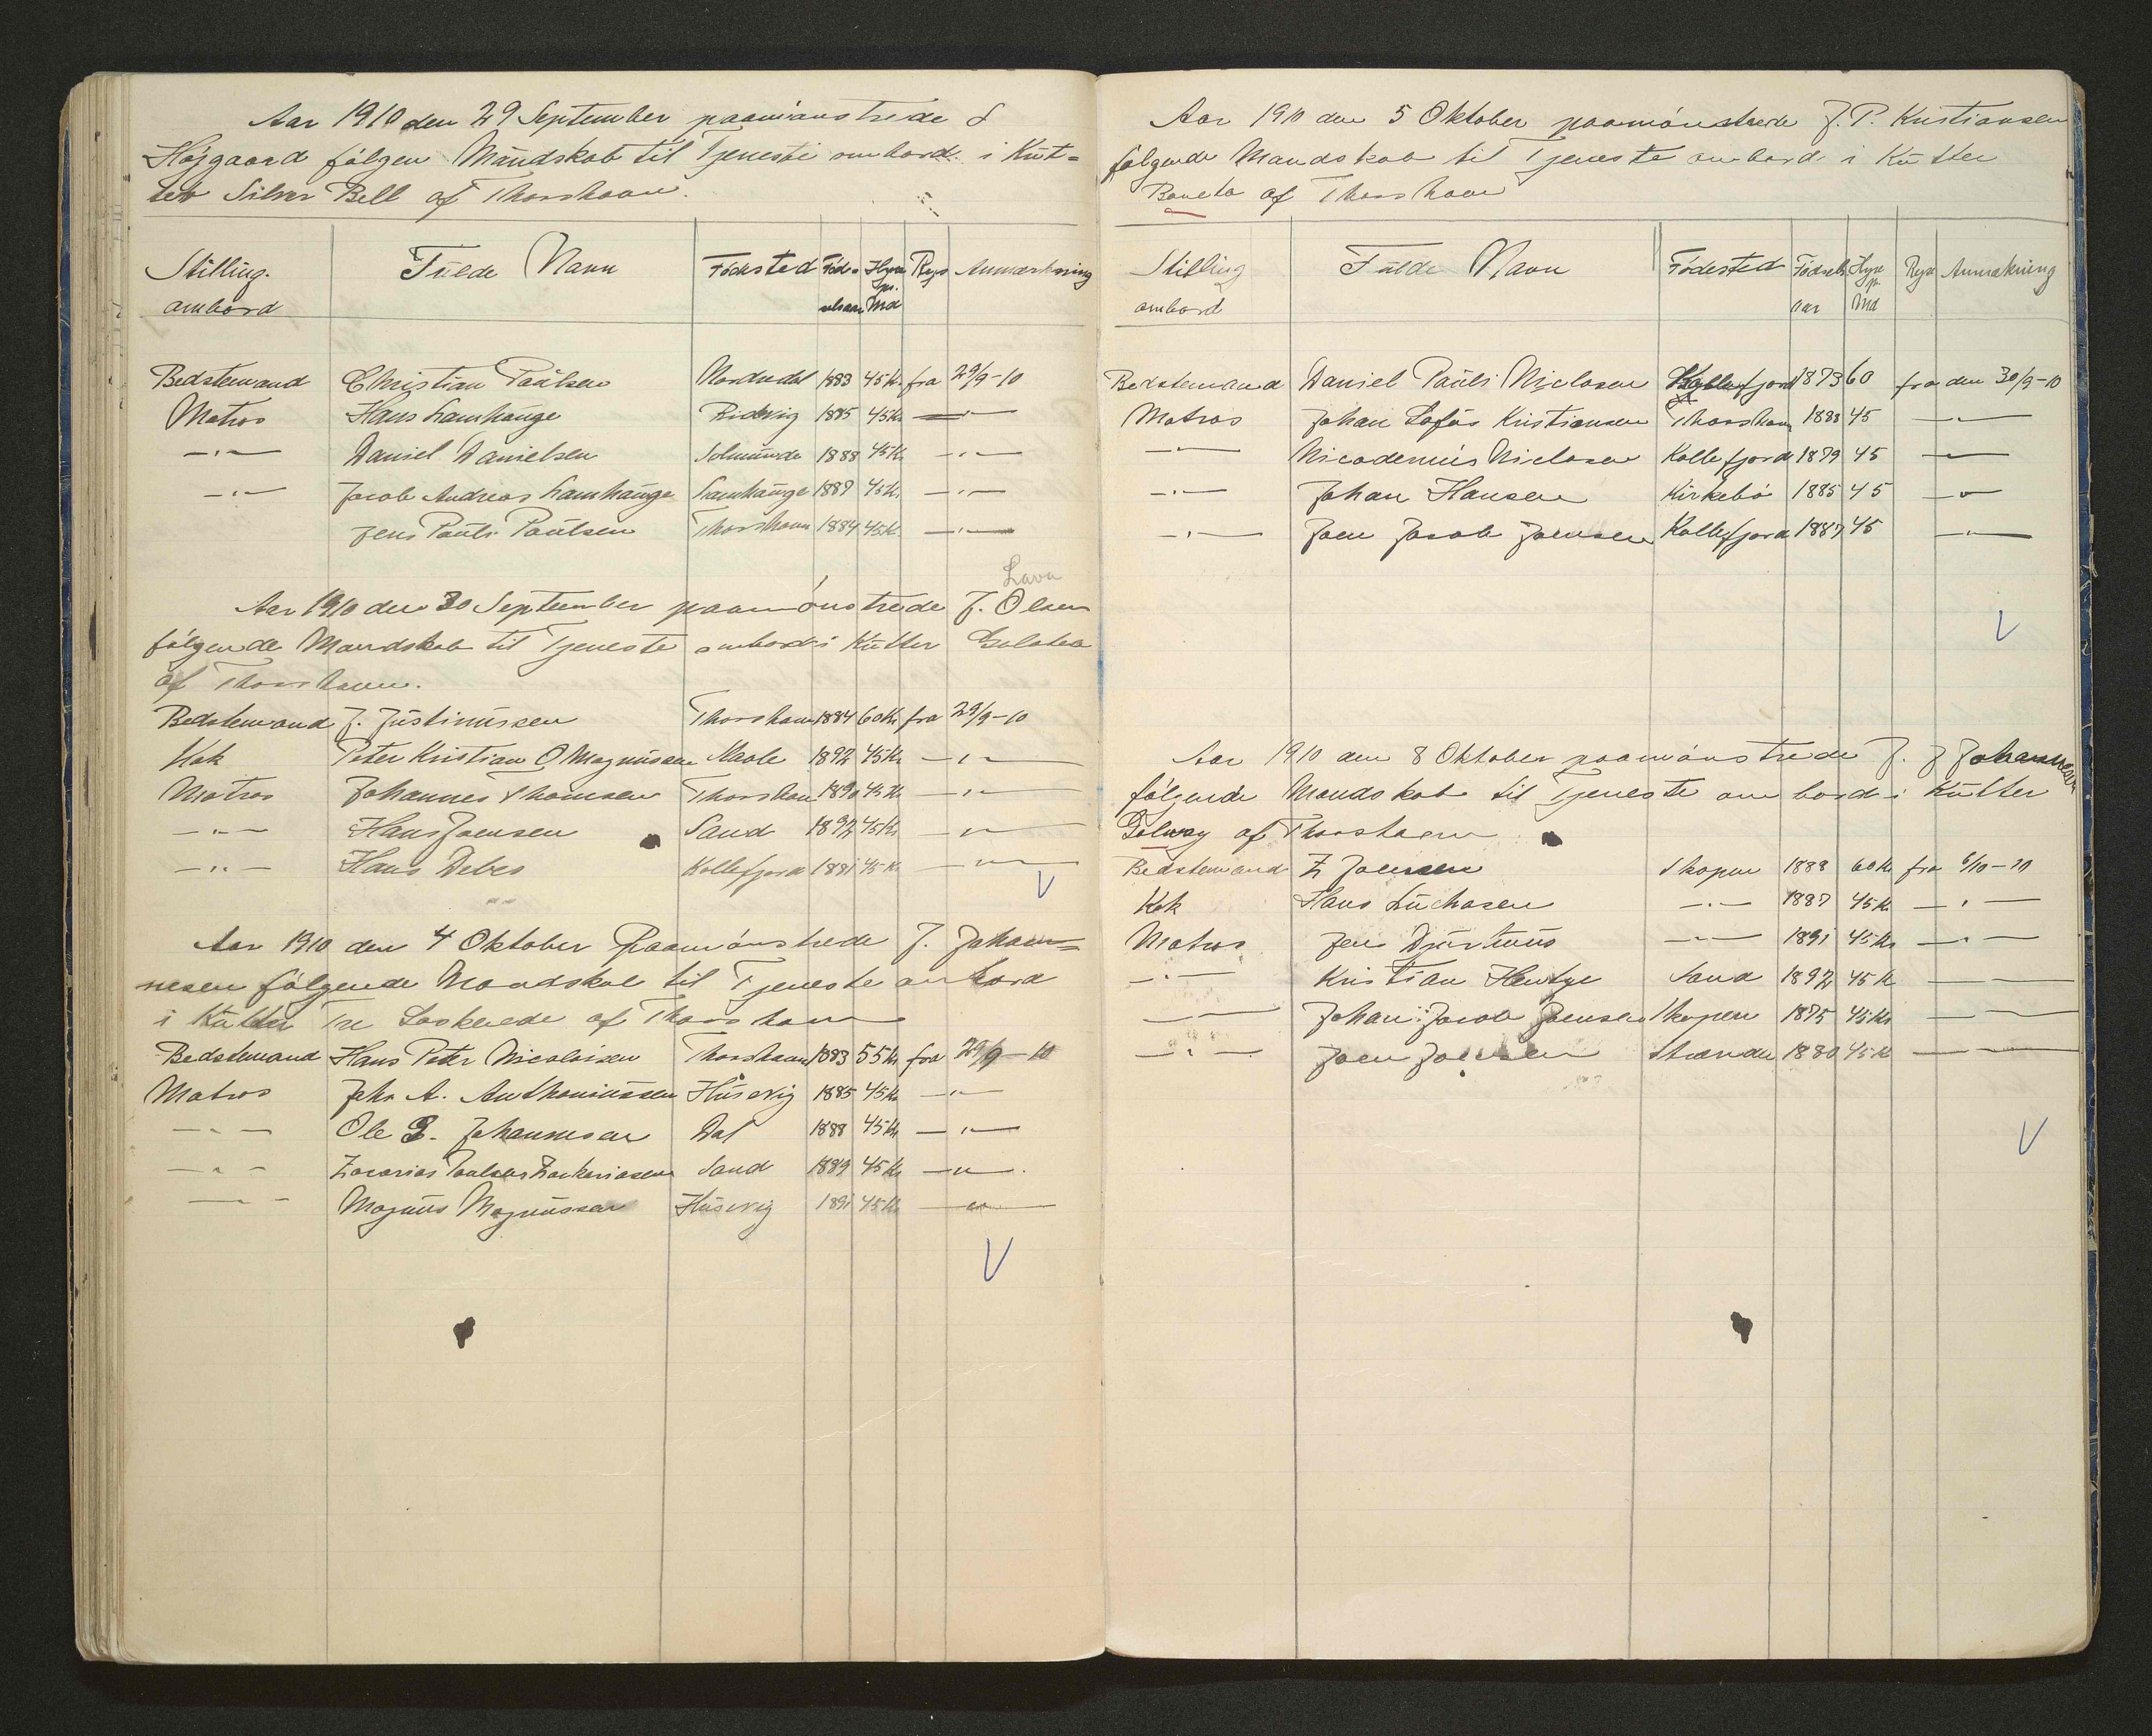 Aar 1910 den 29 September paamönstrede J
Höjgaard fölgen Mandskab til Tjeneste ombord i Küt=
ter Silver Bell af Thorshavn.
Stilling ombord Fulde Navn Födested Födselsaar Hyre pr. Md Rejse Anmærkning
Bedstemand Christian Paülsen Nordredal 1883 45 Kr. fra 29/9-10
Matros Hans Lamhauge 1885 45 Kr —"—
—"— Daniel Danielsen Solmunde 1888 45 Kr —"—
—"— Jacob Andreas Lamhauge Lamhauge 1887 45 Kr. —"—
Jens Pauli Poülsen Thorshavn 1884 45 K. —"—
Lava
Aar 1910 den 30 September paamönstrede J. Olsen
fölgende Mandskab til Tjeneste ombord i Kütter
af Thorshavn.
Bedstemand J. Justinüssen Thorshavn 1884 60 Kr fra 29/9-10
Kok Peter Kristian O Magnüssen 1892 45 Kr —"—
Matros Johannes Thomsen Thorshavn 1890 45 Kr —"—
—"— Hans Joensen Sand 1892 45 Kr. —"—
—"— Hans Debes Kollefjord 1881 45 Kr —"—
Aar 1910 den 4 Oktober Paamönstrede J. Johan=
nesen fölgende Mandskab til Tjeneste ombord
i Kütter Tre Søskende af Thorshavn
Bedstemand Hans Peter Nicolaisen Thorshavn 1883 55 Kr. fra 29/9-10
Matros Johs A. Anthoniüssen Hüsevig 1885 45 Kr —"—
—"— Ole Johannesen Dal 1888 45 Kr —"—
—"— Zacarias Poulsen Zachariasen Sand 1889 45 Kr —"—
—"— Magnüs Magnüssen Hüsevig 1891 45 Kr —"—
Aar 1910 den 5 Oktober paamönstrede J. P. Kristiansen
fölgende Mandskab til Tjeneste ombord i Kütter
Boneta af Thorshavn
Stilling ombord Fulde Navn Födested Födsels aar Hyre pr. Md Rejse Anmærkning
Bedstemand Daniel Paüli Niclasen Kollefjord 1873 60 fra den 30/9-10
Matros Johan Kristiansen Thorshavn 1888 45 —"—
—"— Nicodemüs Niclasen Kollefjord 1879 45 —"—
—"— Johan Hansen Kirkebö 1885 45 —"—
—"— Joen Jacob Joensen Kollefjord 1887 45 —"—
Aar 1910 den 8 Oktober paamönstrede J. J Johannesen
fölgende Mandskab til Tjeneste ombord i Kütter
Golway af Thorshavn
Bedstemand Z Joensen Skopen 1888 60 Kr fra 6/10-10
Kok Hans —"— 1887 45 Kr —"—
Matros Jens Djürhuus —"— 1891 45 Kr —"—
—"— Kristian Hentze Sand 1892 45 K —"—
—"— Johan Jacob Joensen Skopen 1875 45 Kr —"—
—"— Joen Joensen 1880 45 K —"—